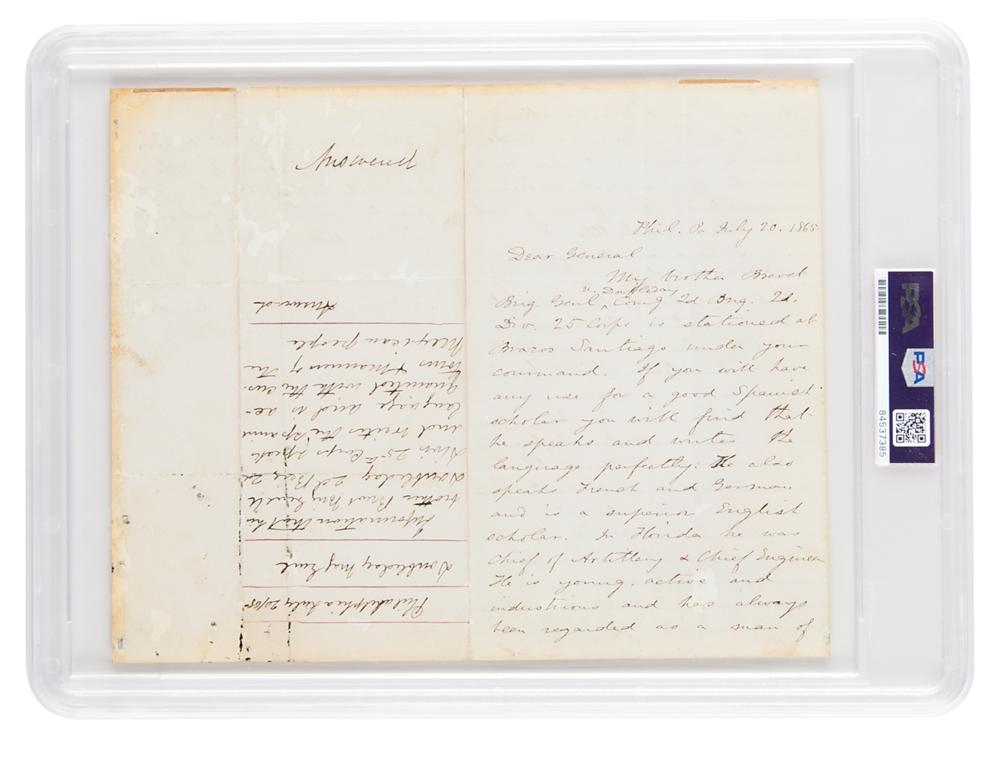 Answered
Phil. Pa July 20. 1865
Dear General
My brother Brevet
U. Doubleday
Brig Genl, Comg 2d Brig. 2d.
Div. 25 Corps is stationed at
Brazos Santiago under your
command. If you will have
any use for a good Spanish
scholar you will find that
he speaks and writes the
language perfectly. He also
speaks French and German
and is a superior English
scholar. In Florida he was
Chief of Artillery & Chief Engineer
He is young, active and
industrious and has always
been regarded as a man of
Philadelphia July 20/65
Doubleday Maj Genl
Information that his
brother Brvt Brig Genl
Doubleday 2d Brig 2d
Divn 25th Corps speaks
and writes the Spanish
language and is ac-
quainted with the cus-
toms & manners of the
Mexican people
Answered
PSA
PSA
84537385